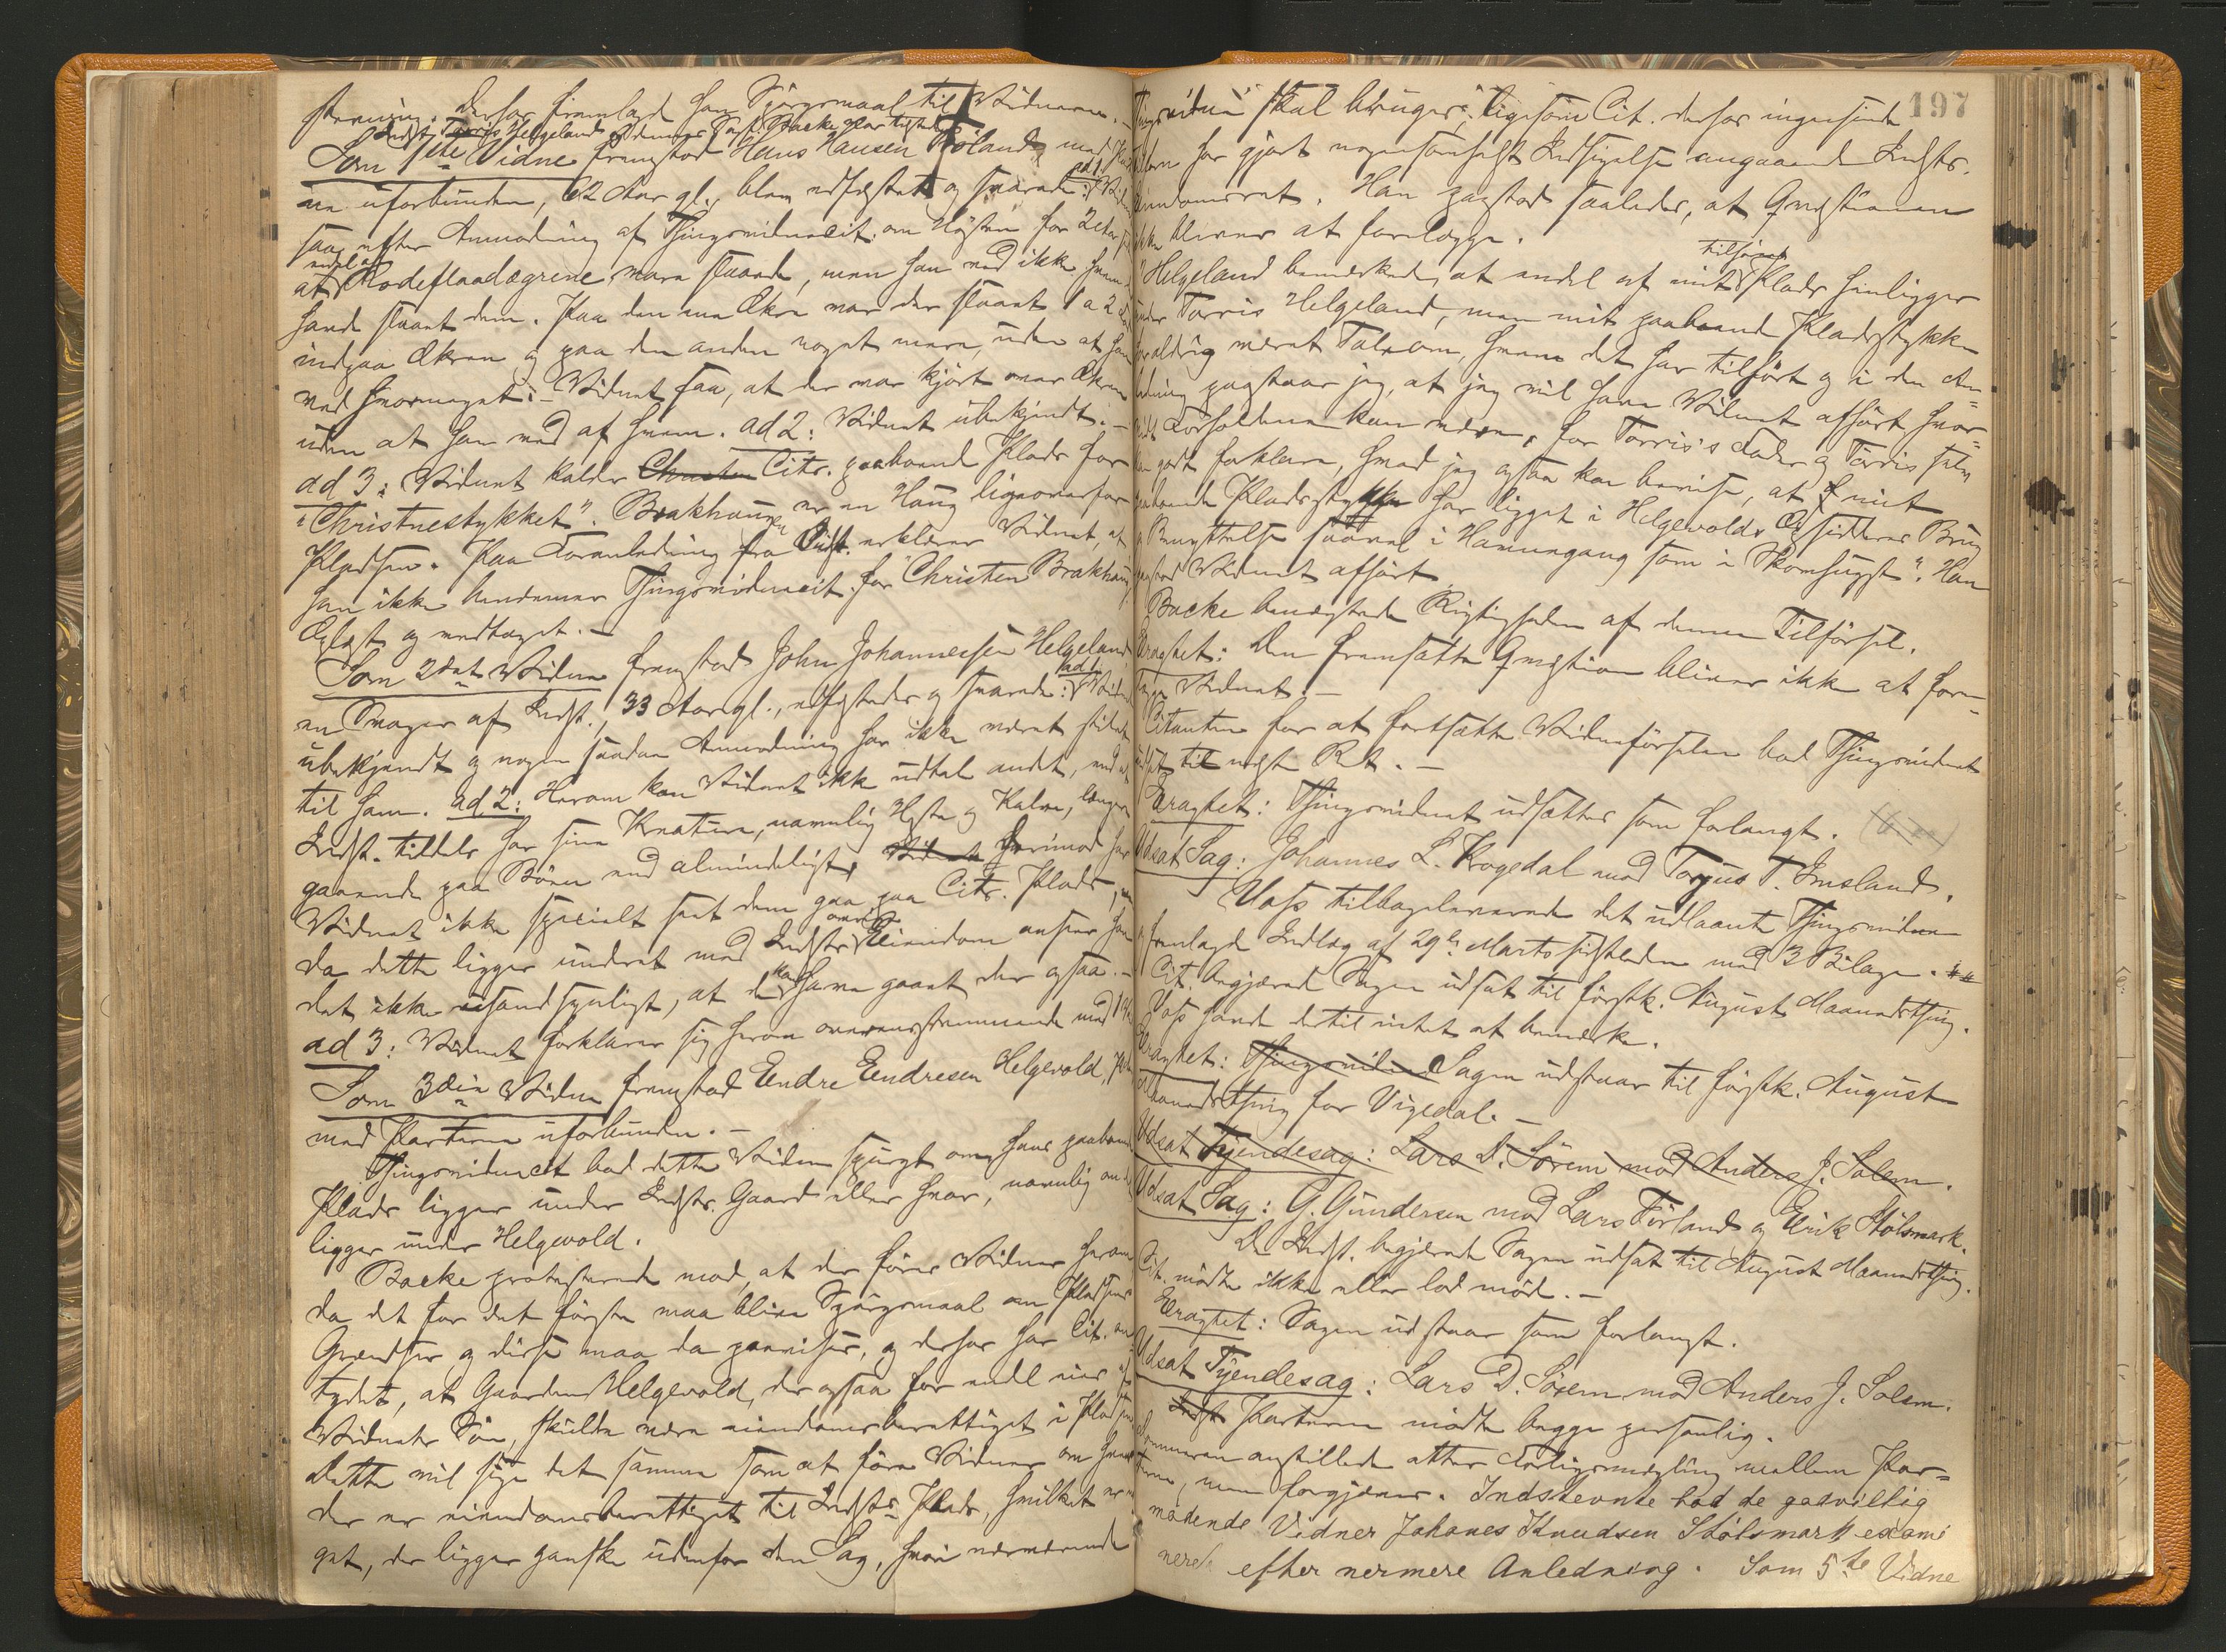 stevning. Derfor fremlagd han Spörgsmaal til Vidnerne.
Indst. Torris Helgeland Sagf. Backe var tilstede
Som 1ste Vidne fremstod Hans Hansen Röland, med
uforbunden, 62 Aar gl., blev edfæstet og svarede: ad 1. Vidnet
saa efter Anmodning af Thingsvidnecit. om Hösten for 2 Aar
at nogle af Rodeflaadægrene vare slaaede, men han ved ikke hvem
havde slaaet dem. Paa den ene Ekra var der slaaet 1 a 2
indpaa Ekren og paa den anden noget mere, uden at han
ved hvormeget. – Vidnet saa, at der var kjört over Ekren
uden at han ved af hvem. ad 2: Vidnet übekjendt. –
ad 3: Vidnet kalder Christen Cits. paaboende Plads for
"Christnestykket". Brakhaug er en Haug ligeoverfor
Pladsen. Paa Foranledning fra Indst. erklærer Vidnet, at
han ikke benævner Thingsvidnecit. for "Christen Brakhaug"
Oplæst og vedtaget. –
Som 2det Vidne fremstod John Johannessen Helgeland
en Svoger af Indst., 33 Aar gl., edfæstedes og svarede: ad 1 Vidnet
ubekjendt og nogen saadan Anmodning har ikke været stilet
til ham. ad 2: Herom kan Vidnet ikke udtale andet, end at
Indst. tildels har sine Kreature, navnlig Heste og Kalve, længere
gaaende paa Böen end almindeligt. Vidnet Derimod har
Vidnet ikke specielt seet dem gaa paa Cits. Plads, men
da dette ligger underet med Indsts. övrige Eiendom anser han
det ikke usandsynligt, at de kan have gaaet der ogsaa. –
ad 3: Vidnet forklarer sig herom overensstemmende med 1ste
Som 3die Vidne fremstod Endre Endresen Helgevold,
med Parterne uforbunden. –
Thingsvidnecit bad dette Vidne spurgt om hans paaboende
Plads ligger under Indsts. Gaard eller hvor, navnlig om det
ligger under Helgevold.
Backe protesterede mod, at der föres Vidner herom
da det for det förste maa blive Spörgsmaal om Pladsens
Grændser og disse maa da paavises, og derfor har Cit. an-
tydet, at Gaarden Helgevold, der ogsaa for endel eies af
Vidnets Sön, skulde være eiendomsberettiget i Pladsen
Dette vil sige det samme som at före Vidner om hvem
der er eiendomsberettiget til Indsts. Plads, hvilket er
get, der ligger ganske udenfor den Sag, hvori nærværende
197
Thingsvidne skal bruges, ligesom Cit. derfor ingensinde
har gjort nogensomhelst Indsigelse angaaende Indsts.
Eiendomsret. Han paastod saaledes, at Qvæstionen
ikke bliver at forelægge.
Helgeland bemærkede, at "endel af mit tilförte Plads henligger
under Torris Helgeland, men mit paaboende Pladsstykke
har aldrig været Tale om, hvem det har tilhört og i den An-
ledning paastaar jeg, at jeg vil have Vidnet afhört hvor-
vidt Forholdene kan være, for Torris's Fader og Torris selv
kan godt forklare, hvad jeg ogsaa kan bevise, at mit
paaboende Pladsstykke har ligget i Helgevolds Opsidderes Brug
og Benyttelse saavel i Havnegang som i Skovhugst". Han
paastod Vidnet afhört.
Backe benægtede Rigtigheden af denne Tilförsel.
Eragtet: Den fremsatte Qvæstion bliver ikke at fore-
lægge Vidnet. –
Citanten for at fortsætte Vidneförselen bad Thingsvidnet
udsat til næste Ret. –
Eragtet: Thingsvidnet udsættes som forlangt.
Udsat Sag: Johannes L. Krogedal mod Torgus T. Imsland.
Vass tilbageleverede det udlaante Thingsvidne
og fremlagde Indlæg af 29de Marts sidstleden med 3 Bilage.
Cit. begjærede Sagen udsat til förstk. August Maanedsthing.
Vass havde dertil intet at bemærke.
Eragtet: Thingsvidnet Sagen udstaar til förstk. August
Maanedsthing for Vigedal. –
Udsat Tyendesag: Lars D. Sörem mod Anders J. Solem.
Udsat Sag: G. Gundersen mod Lars Förland og Eirik Stölsmark.
De Indst. begjærede Sagen udsat til August Maanedsthing.
Cit. mödte ikke eller lod möde. –
Eragtet: Sagen udstaar som forlangt.
Udsat Tyendesag: Lars D. Sörem mod Anders J. Solem.
Indst Parterne mödte begge personlig.
Dommeren anstillede atter Forligsmægling mellem Par-
terne, men forgjæves. Indstevnte bad de godvillig
mödende Vidner Johanes Knudsen Stölsmark exami
nerede efter nermere Anledning. Som 5te Vidne